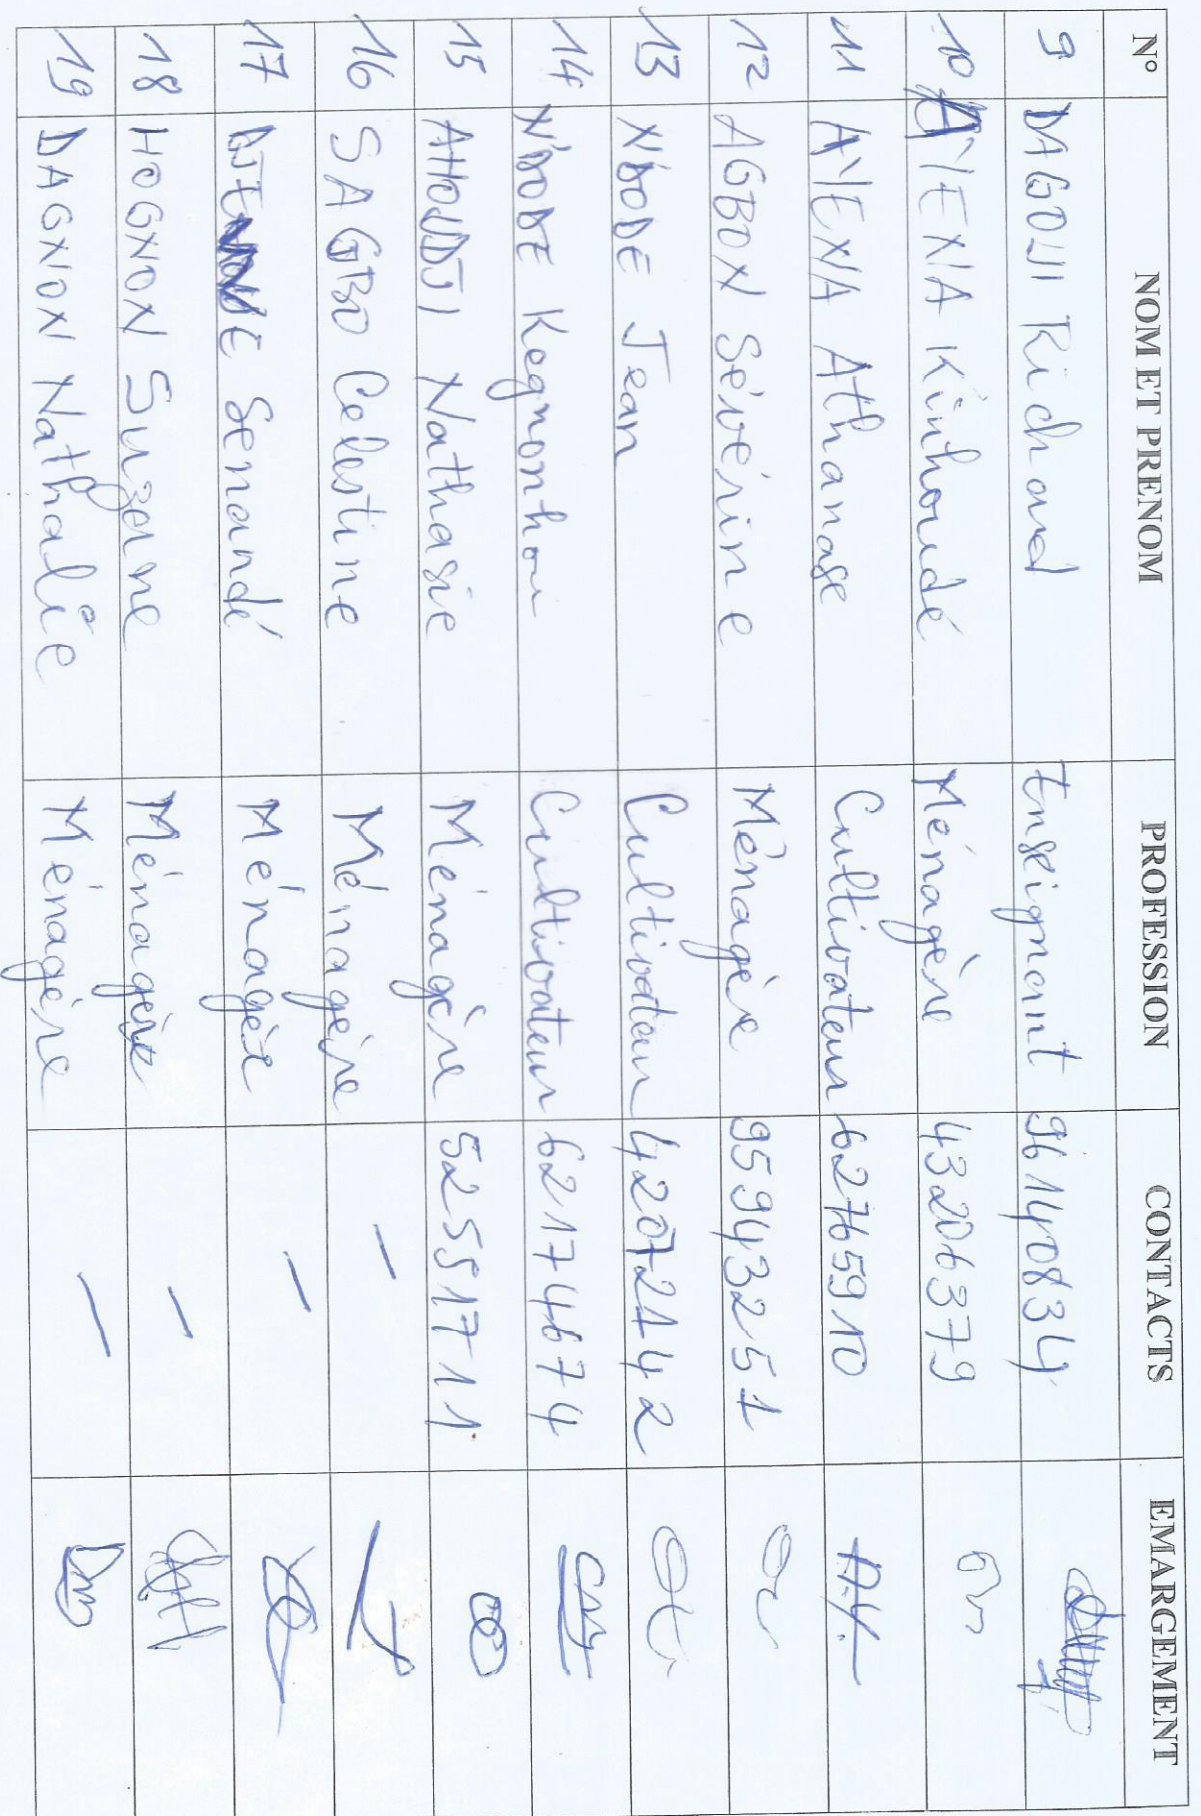 N° NOM ET PRENOM PROFESSION CONTACTS EMARGEMENT
9 DAGOUI Richard Enseignant 96140834
10 AYENA Kinhoudé Ménagère 43206379
11 AYENA Athanase Cultivateur 62765910
12 AGBON Séverine Ménagère 95943251
13 N'DODE Jean Cultivateur 42072142
14 N'DODE Kegnonhou Cultivateur 62174674
15 AHOUDJI Nathasie Ménagère 52551711
16 SAGBO Celestine Ménagère —
17 Senandé Ménagère —
18 HOGNON Suzane Ménagère —
19 DAGNON Nathalie Ménagère —